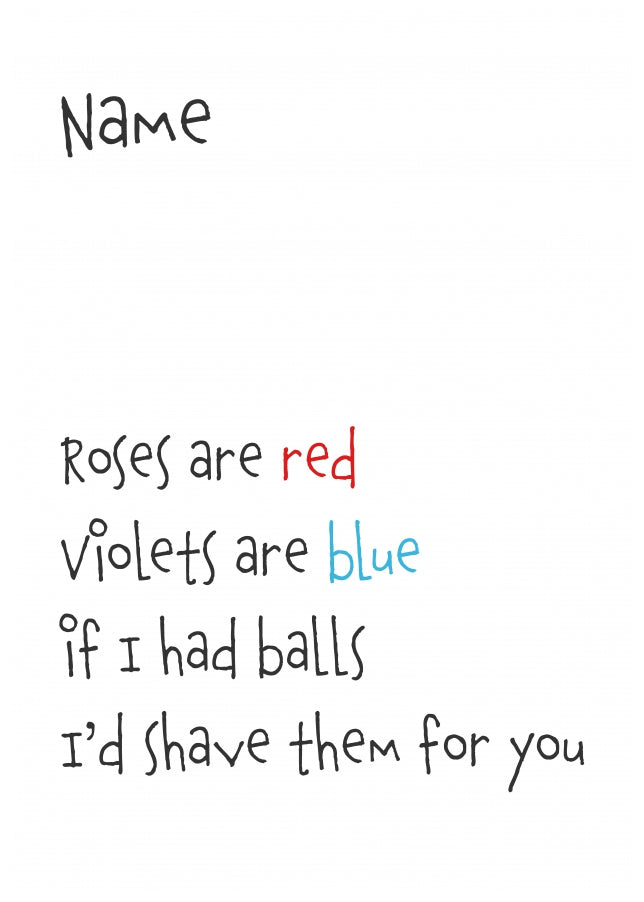 Name
Roses are red
violets are blue
if I had balls
I'd shave them for you